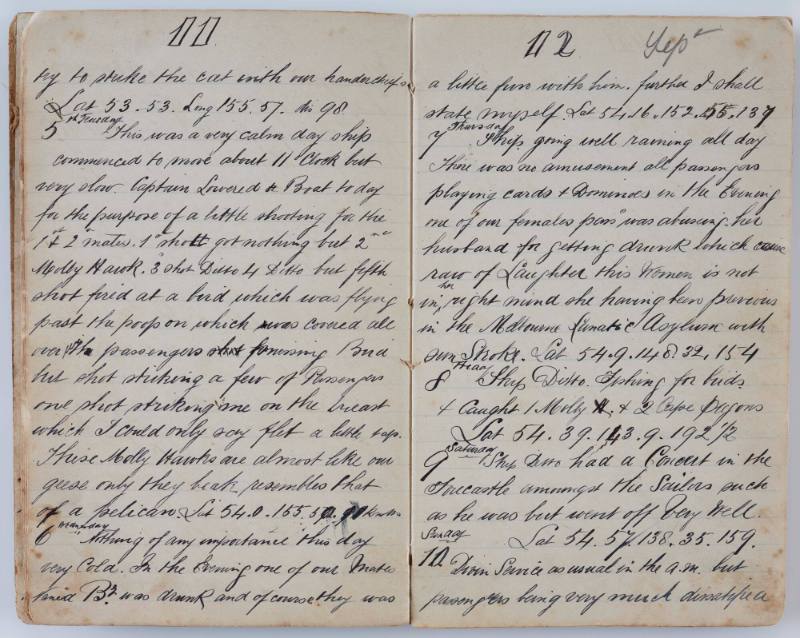 11
try to strike the cat with our handerchifs
Lat 53. 53. Long 155. 57. dis 98
5th Tuesday This was a very calm day ship
commenced to move about 11 Clock but
very slow. Captain Lowered a Boat to day
for the purpose of a little shooting for the
1st & 2nd mates. 1st shott got nothing but 2nd
Molly Hawk. 3 shot Ditto 4 Ditto but fifth
shot fired at a bird which was flying
past the poop on which was covered all
over the passengers shot missing Bird
but shot striking a few of Passengers
one shot striking me on the breast
which I could only say felt a little
These Molly Hawks are almost like our
geese only they beak resembles that
of a pelican Lat 54.0.155.50.
6 Wednesday Nothing of any importance this day
very Cold. In the Evening one of our Mates
named was drunk and of course they was
12 Sept
a little fun with him. further I shall
state myself Lat 54.16.152.55.137
7 Thursday Ship going well raining all day
There was no amusement all passengers
playing cards & Dominoes in the Evening
one of our females pass was abusing her
husband for getting drunk which cause
raw of Laughter this Women is not
in her right mind she having been previous
in the Melbourne Lunatic Asylum with
sun Stroke. Lat 54.9.148.32.154
8 Friday Ship Ditto. Fishing for birds
& Caught 1 Molly H. & 2 Cape Pegons
Lat 54.39.143.9.192 1/2
9 Saturday Ship Ditto had a Concert in the
Forecastle amongst the Sailors such
as he was but went off Very Well.
Sunday Lat 54.57.138.35.159.
10 Divin Service as usual in the a.m. but
passengers being very much